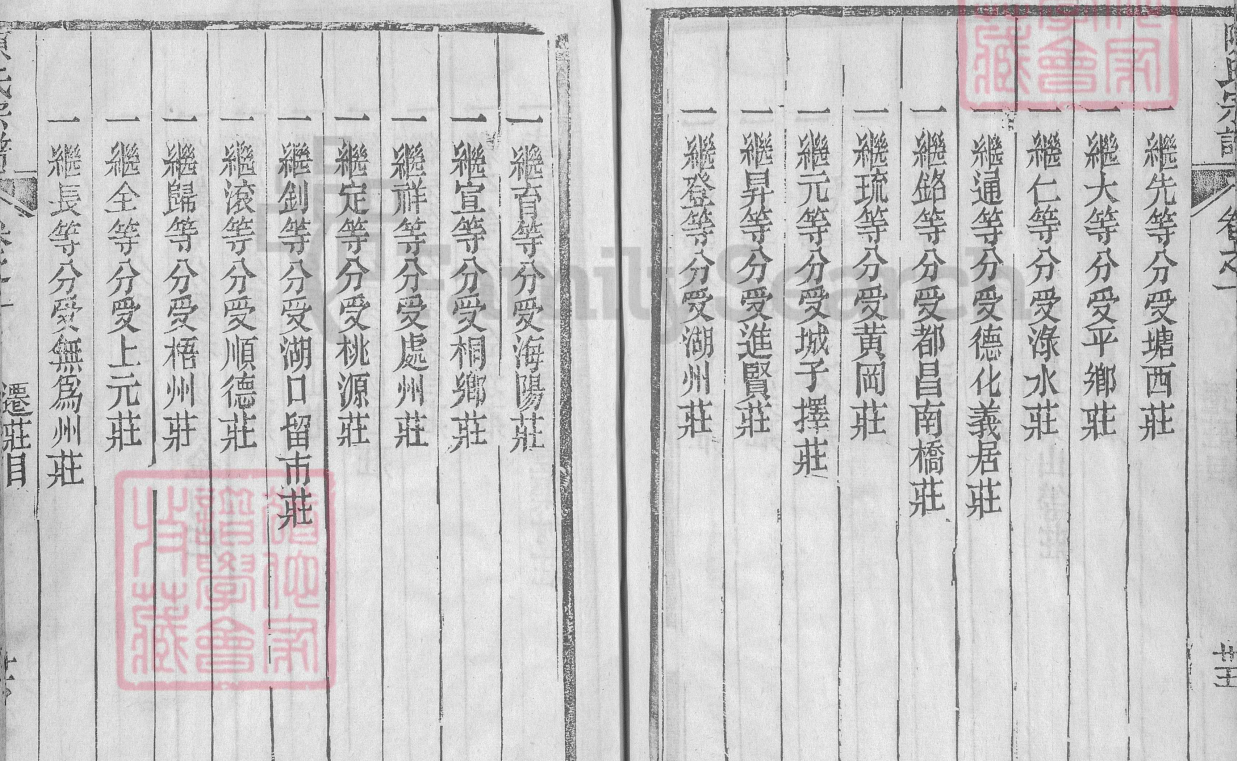 陳氏宗譜
卷之一
卅五
一繼先等分受塘西莊
一繼大等分受平鄉莊
一繼仁等分受淥水莊
一繼通等分受德化義居莊
一繼銘等分受都昌南橋莊
一繼琉等分受黃岡莊
一繼元等分受城子擇莊
一繼昇等分受進賢莊
一繼登等分受湖州莊
一繼育等分受海陽莊
一繼宣等分受桐鄉莊
一繼祥等分受處州莊
一繼定等分受桃源莊
一繼釗等分受湖口留市莊
一繼滚等分受順德莊
一繼歸等分受梧州莊
一繼全等分受上元莊
一繼長等分受無為州莊
陳氏宗譜
卷之一
遷莊目
譜學會
藏
FamilySearch